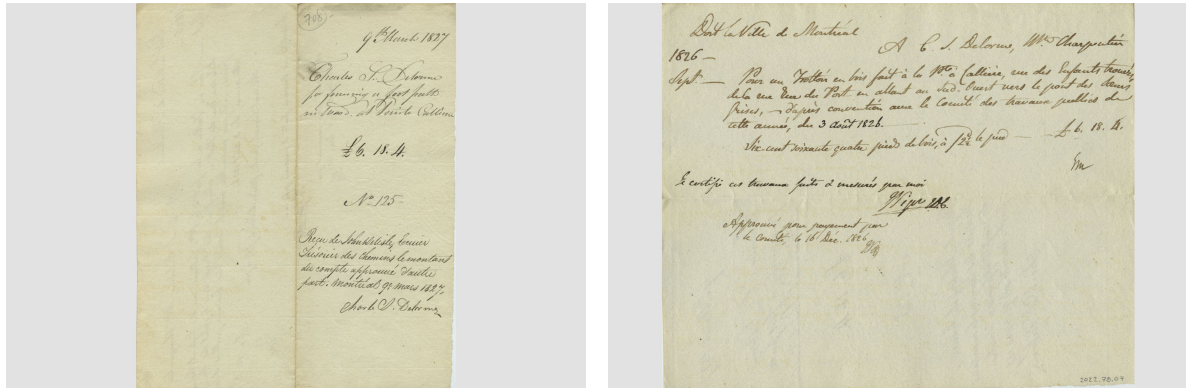 708
9th March 1827
Charles S. Delorme
for forming a foot path
in wood at Pointe Calliere
£6. 18. 4.
No 125
Reçu de John Delisle, Ecuier
Trésorier des chemins le montant
du compte approuvé d'autre
part. Montréal 9e mars 1827,
Charles S. Delorme
Doit la Ville de Montréal
A C. S. Delorme, Mtre Charpentier
1826 —
Sept. — Pour un Trottoir en bois fait à la Pte à Calliere, rue des Enfants trouvés,
de la rue du Port en allant au Sud-Ouest vers le pont des Sœurs
Grises, — d'après convention avec le Comité des travaux publics de
cette année, du 3 août 1826.
Six-cent soixante quatre pieds de bois, à le pied — £6. 18. 4.
Je certifie ces travaux faits & mesurés par moi
JViger
Approuvé pour payement par
le comité, le 16 Déc. 1826
2022.28.07